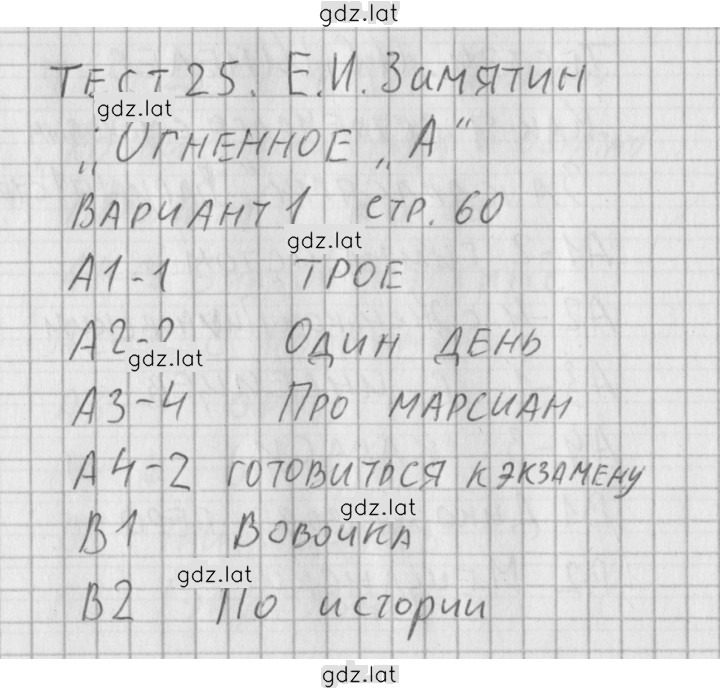 gdz.lat
ТЕСТ 25. Е.И. Замятин
gdz.lat
„Огненное „А“
Вариант 1 стр. 60
gdz.lat
А1-1 Трое
А2-2 Один день
gdz.lat
А3-4 Про марсиан
А4-2 готовиться к экзамену
gdz.lat
В1 Вовочка
gdz.lat
В2 По истории
gdz.lat